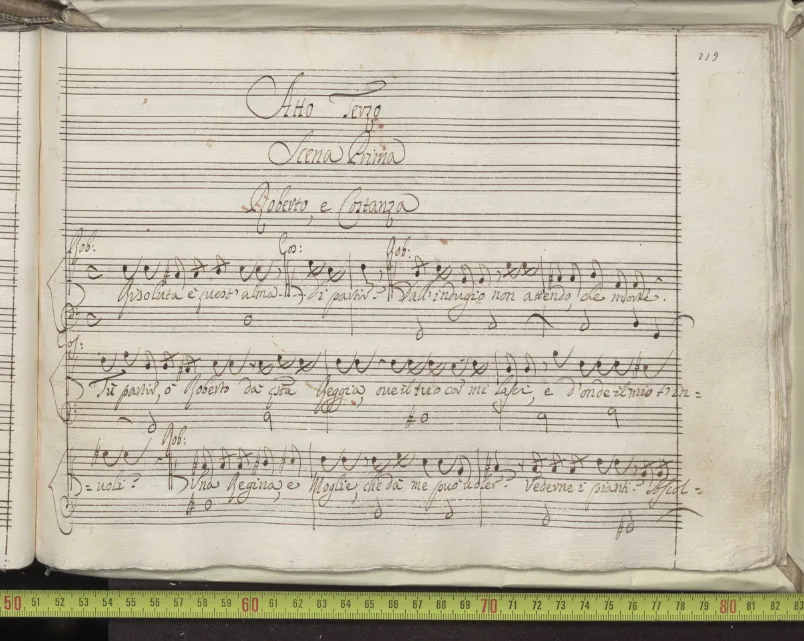 219
Atto Terzo
Scena Prima
Roberto, e Costanza
Rob: Cos: Rob:
Risoluta è quest'alma di partir? Dall'indugio non attendo, che morte.
Cos:
Tù partir, ò Roberto da qsta Reggia, oue il tuo cor mi lasci, e d'onde il mio t'in=
Rob:
=uoli? Una Regina, e Moglie, che da me può uoler? Vederne i pianti? Ascol=
50 51 52 53 54 55 56 57 58 59 60 61 62 63 64 65 66 67 68 69 70 71 72 73 74 75 76 77 78 79 80 81 82 83